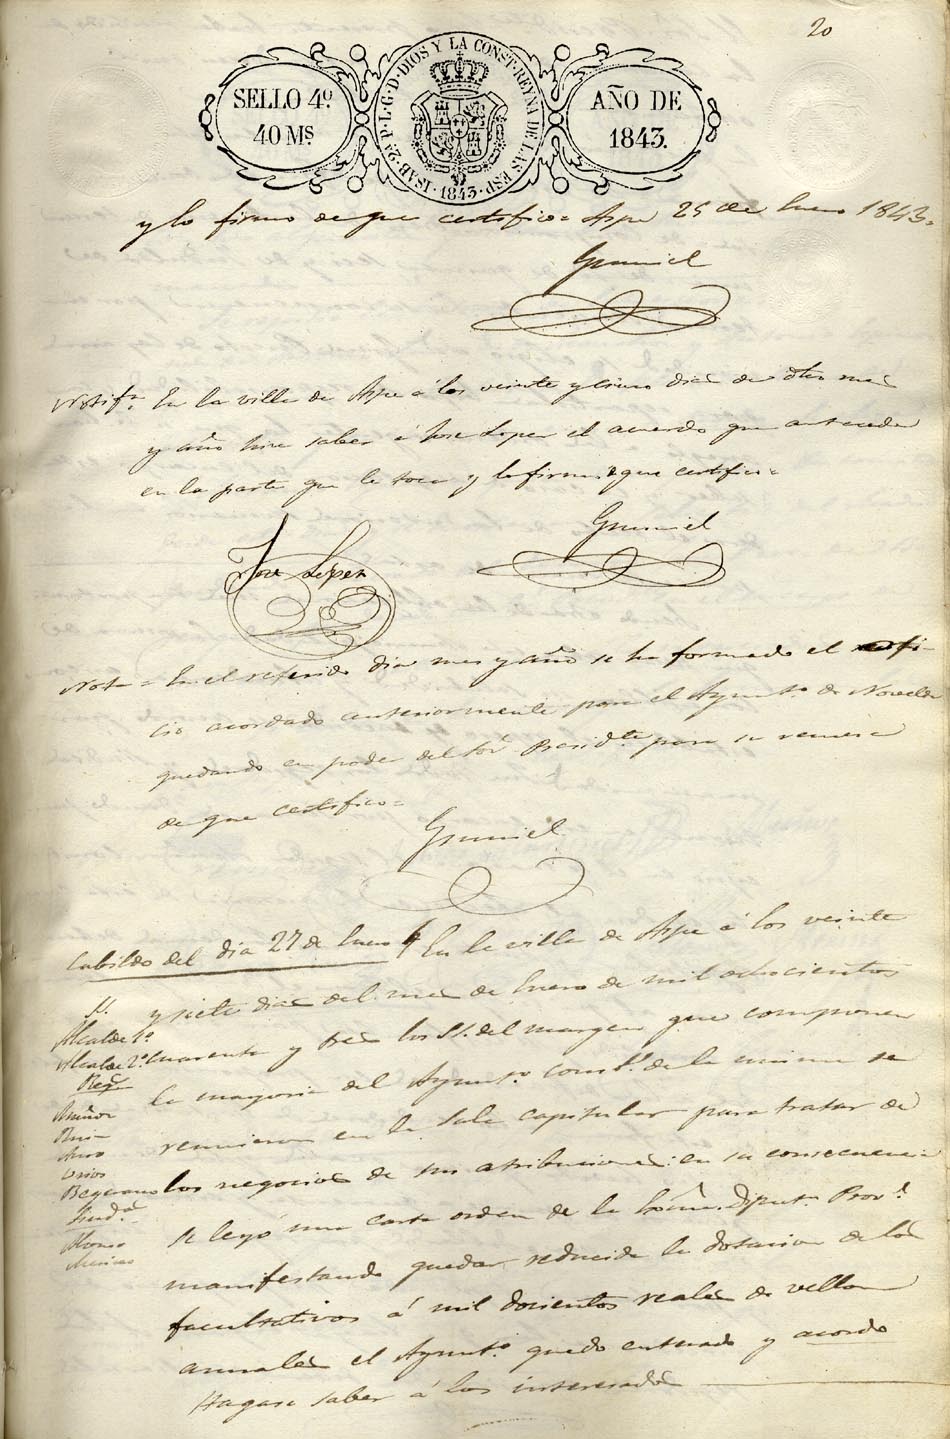 20
SELLO 4º.
40 Mˢ.
ISAB. 2ª P. L. G. D. DIOS Y LA CONST. REYNA DE LAS ESP. 1843.
AÑO DE
1843.
y lo firmo de que certifico= Aspe 25 de Enero 1843=
Notifⁿ. En la villa de Aspe á los veinte y cinco dias de dho mes
y año hice saber á Jose Lopez el acuerdo que antecede
en la parte que le toca y lo firma de que certifico=
Jose Lopez
Nota = En el referido dia mes y año se ha formado el ofi-
cio acordado anteriormente para el Ayuntº. de Novelda
quedando en poder del Sor. Presidte. para su remesa
de que certifico=
Cabildo del dia 27 de Enero En la villa de Aspe á los veinte
y siete dias del mes de Enero de mil ochocientos
SS.
Alcalde 1º
Alcalde 2º
cuarenta y tres los SS. del margen que componen
Regs.
la mayoria del Ayuntº. consl. de la misma se
reunieron en la Sala capitular para tratar de
los negocios de sus atribuciones: en su consecuencia
se leyó una carta orden de la Exma. Diputn. Provl.
Alonso
manifestando quedar reducida la dotacion de los
facultativos á mil docientos reales de vellon
anuales el Ayuntº. quedo enterado y acordo
Hagase saber á los interesados